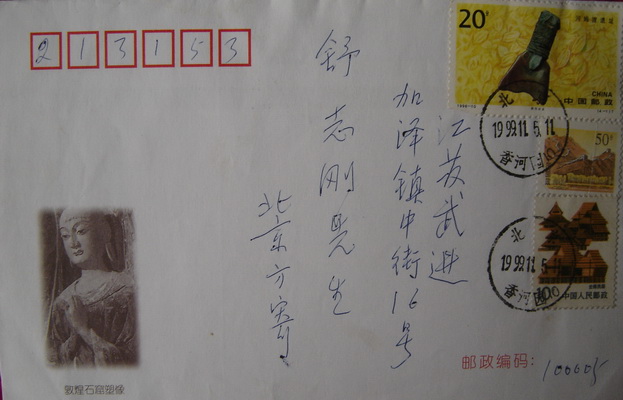 213153
江苏武进
加泽镇中街16号
舒志刚先生
北京方寄
邮政编码:100005
敦煌石窟塑像
20分
CHINA
中国邮政
50分
100
中国人民邮政
北
1999.11.5.11
香河园
北
1999.11.5.11
香河园